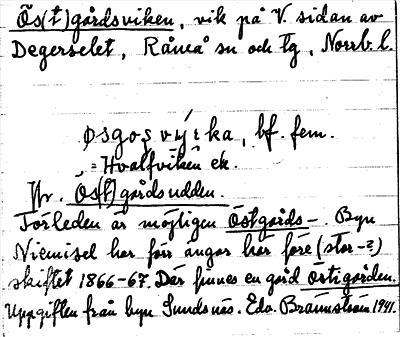 Ös(t)gårdsviken, vik på V. sidan av
Degerselet, Råneå sn och tg, Norrb. l.
øsgosvyika, bf. fem.
= Hvalfviken ek.
Jfr. Ös(t)gårdsudden.
Förleden är möjligen Östgårds-. Byn
Niemisel har förr ängar här före (stor-?)
skiftet 1866-67. Där finnes en gård Östigården.
Uppgiften från byn Sundsnäs. Edv. Brännström 1941.